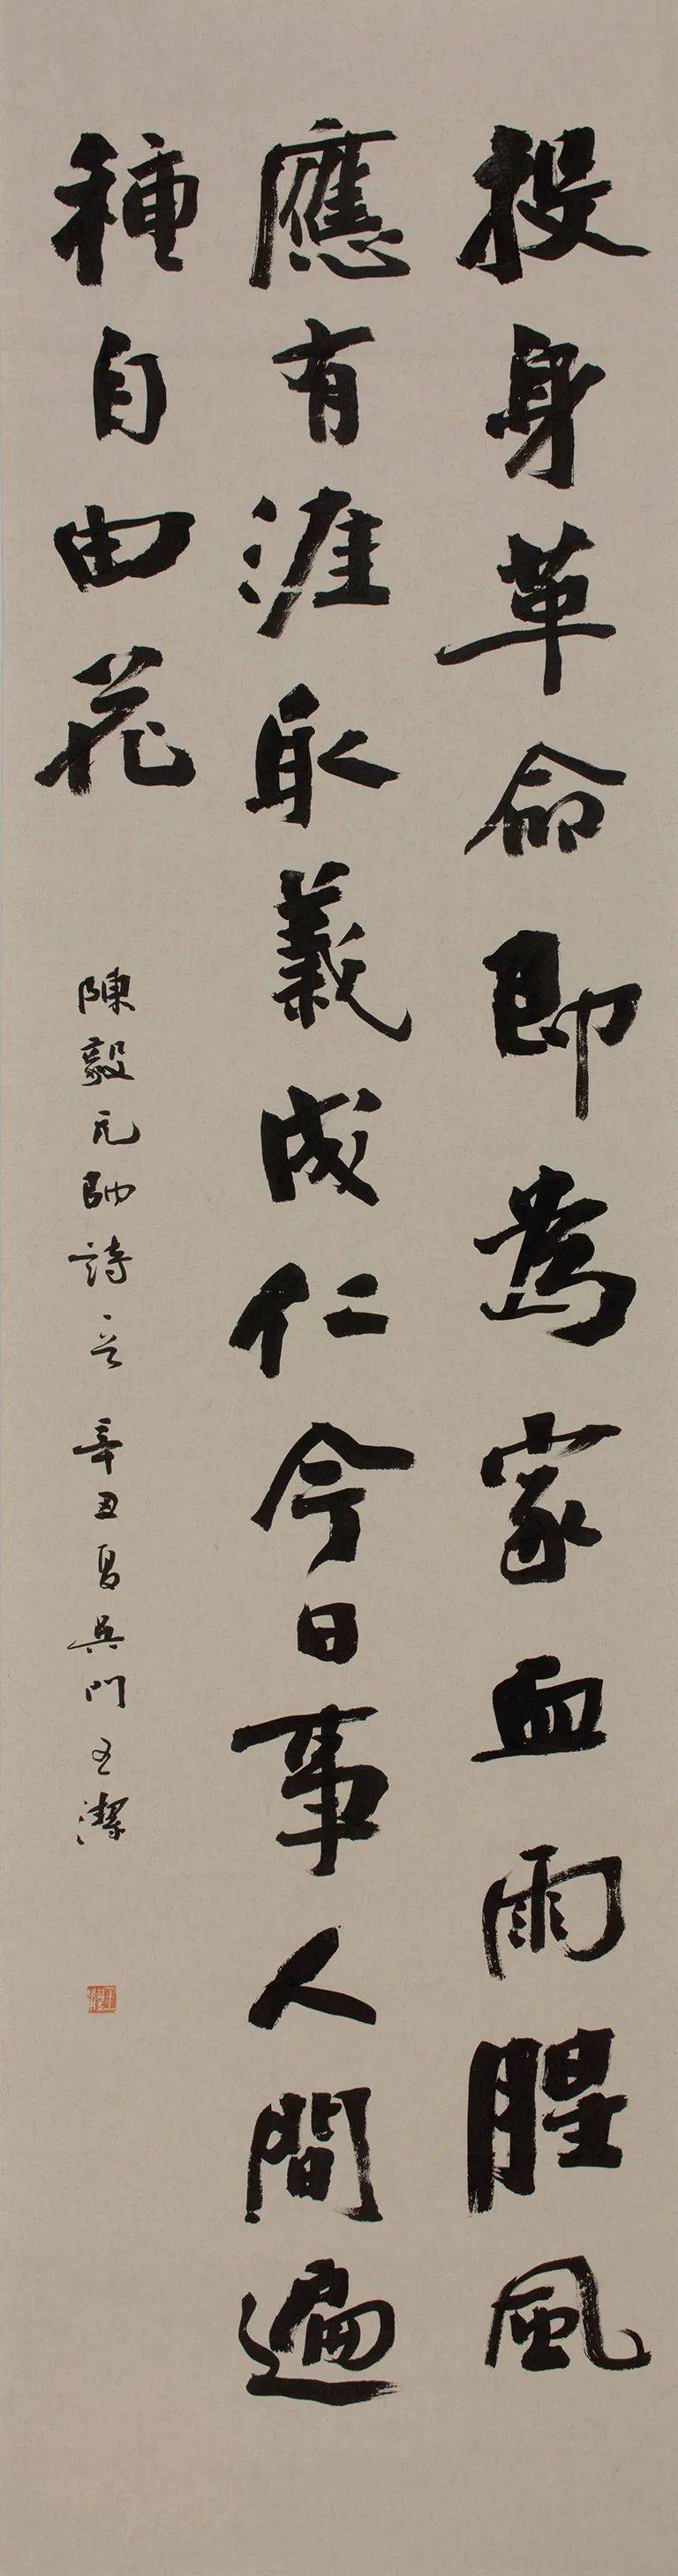 投身革命即為家血雨腥風
應有涯取義成仁今日事人間遍
種自由花
陳毅元帥詩一首 辛丑夏吳門王潔